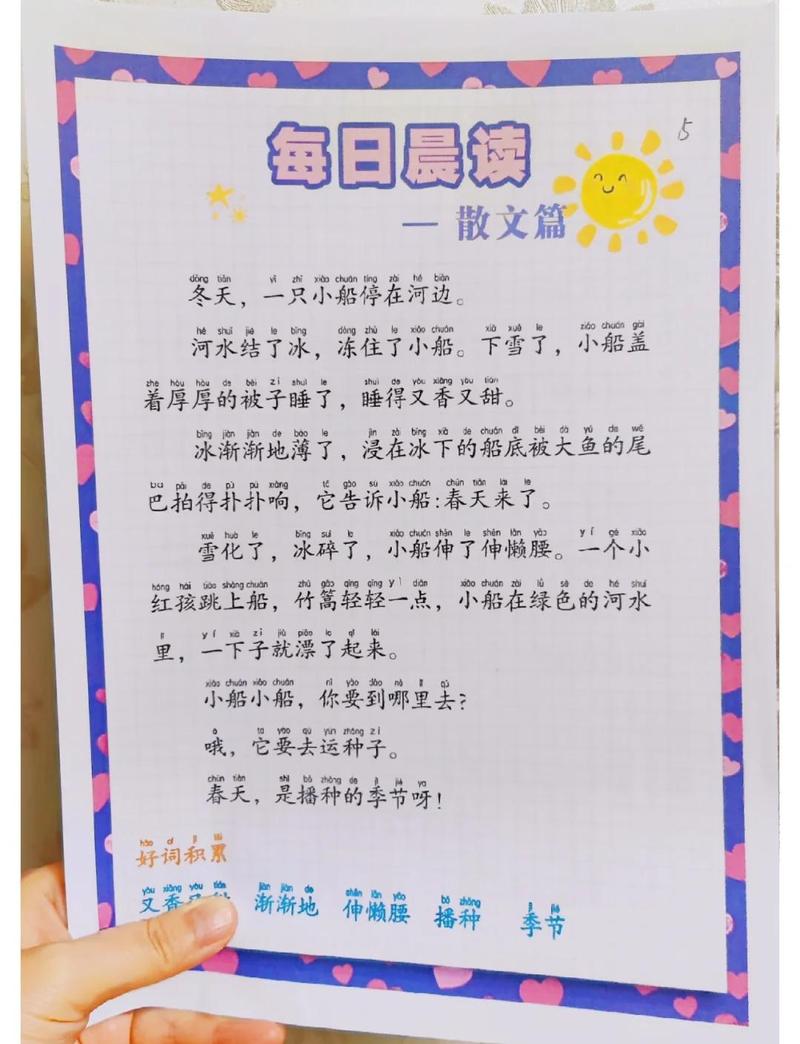 每日晨读
5
— 散文篇
dōng tiān yì zhī xiǎo chuán tíng zài hé biān
冬天，一只小船停在河边。
hé shuǐ jié le bīng dòng zhù le xiǎo chuán xià xuě le xiǎo chuán gài
河水结了冰，冻住了小船。下雪了，小船盖
zhe hòu hòu de bèi zi shuì le shuì de yòu xiāng yòu tián
着厚厚的被子睡了，睡得又香又甜。
bīng jiàn jiàn de báo le jìn zài bīng xià de chuán dǐ bèi dà yú de wěi
冰渐渐地薄了，浸在冰下的船底被大鱼的尾
ba pāi de pū pū xiǎng tā gào sù xiǎo chuán chūn tiān lái le
巴拍得扑扑响，它告诉小船:春天来了。
xuě huà le bīng suì le xiǎo chuán shēn le shēn lǎn yāo yí gè xiǎo
雪化了，冰碎了，小船伸了伸懒腰。一个小
hóng hái tiào shàng chuán zhú gāo qīng qīng yì diǎn xiǎo chuán zài lǜ sè de hé shuǐ
红孩跳上船，竹篙轻轻一点，小船在绿色的河水
lǐ yí xià zi jiù piāo le qǐ lái
里，一下子就漂了起来。
xiǎo chuán xiǎo chuán nǐ yào dào nǎ lǐ qù
小船小船，你要到哪里去?
ò tā yào qù yùn zhǒng zi
哦，它要去运种子。
chūn tiān shì bō zhǒng de jì jié ya
春天，是播种的季节呀!
hǎo cí jī lěi
好词积累
yòu xiāng yòu tián jiàn jiàn de shēn lǎn yāo bō zhǒng jì jié
又香又 渐渐地 伸懒腰 播种 季节